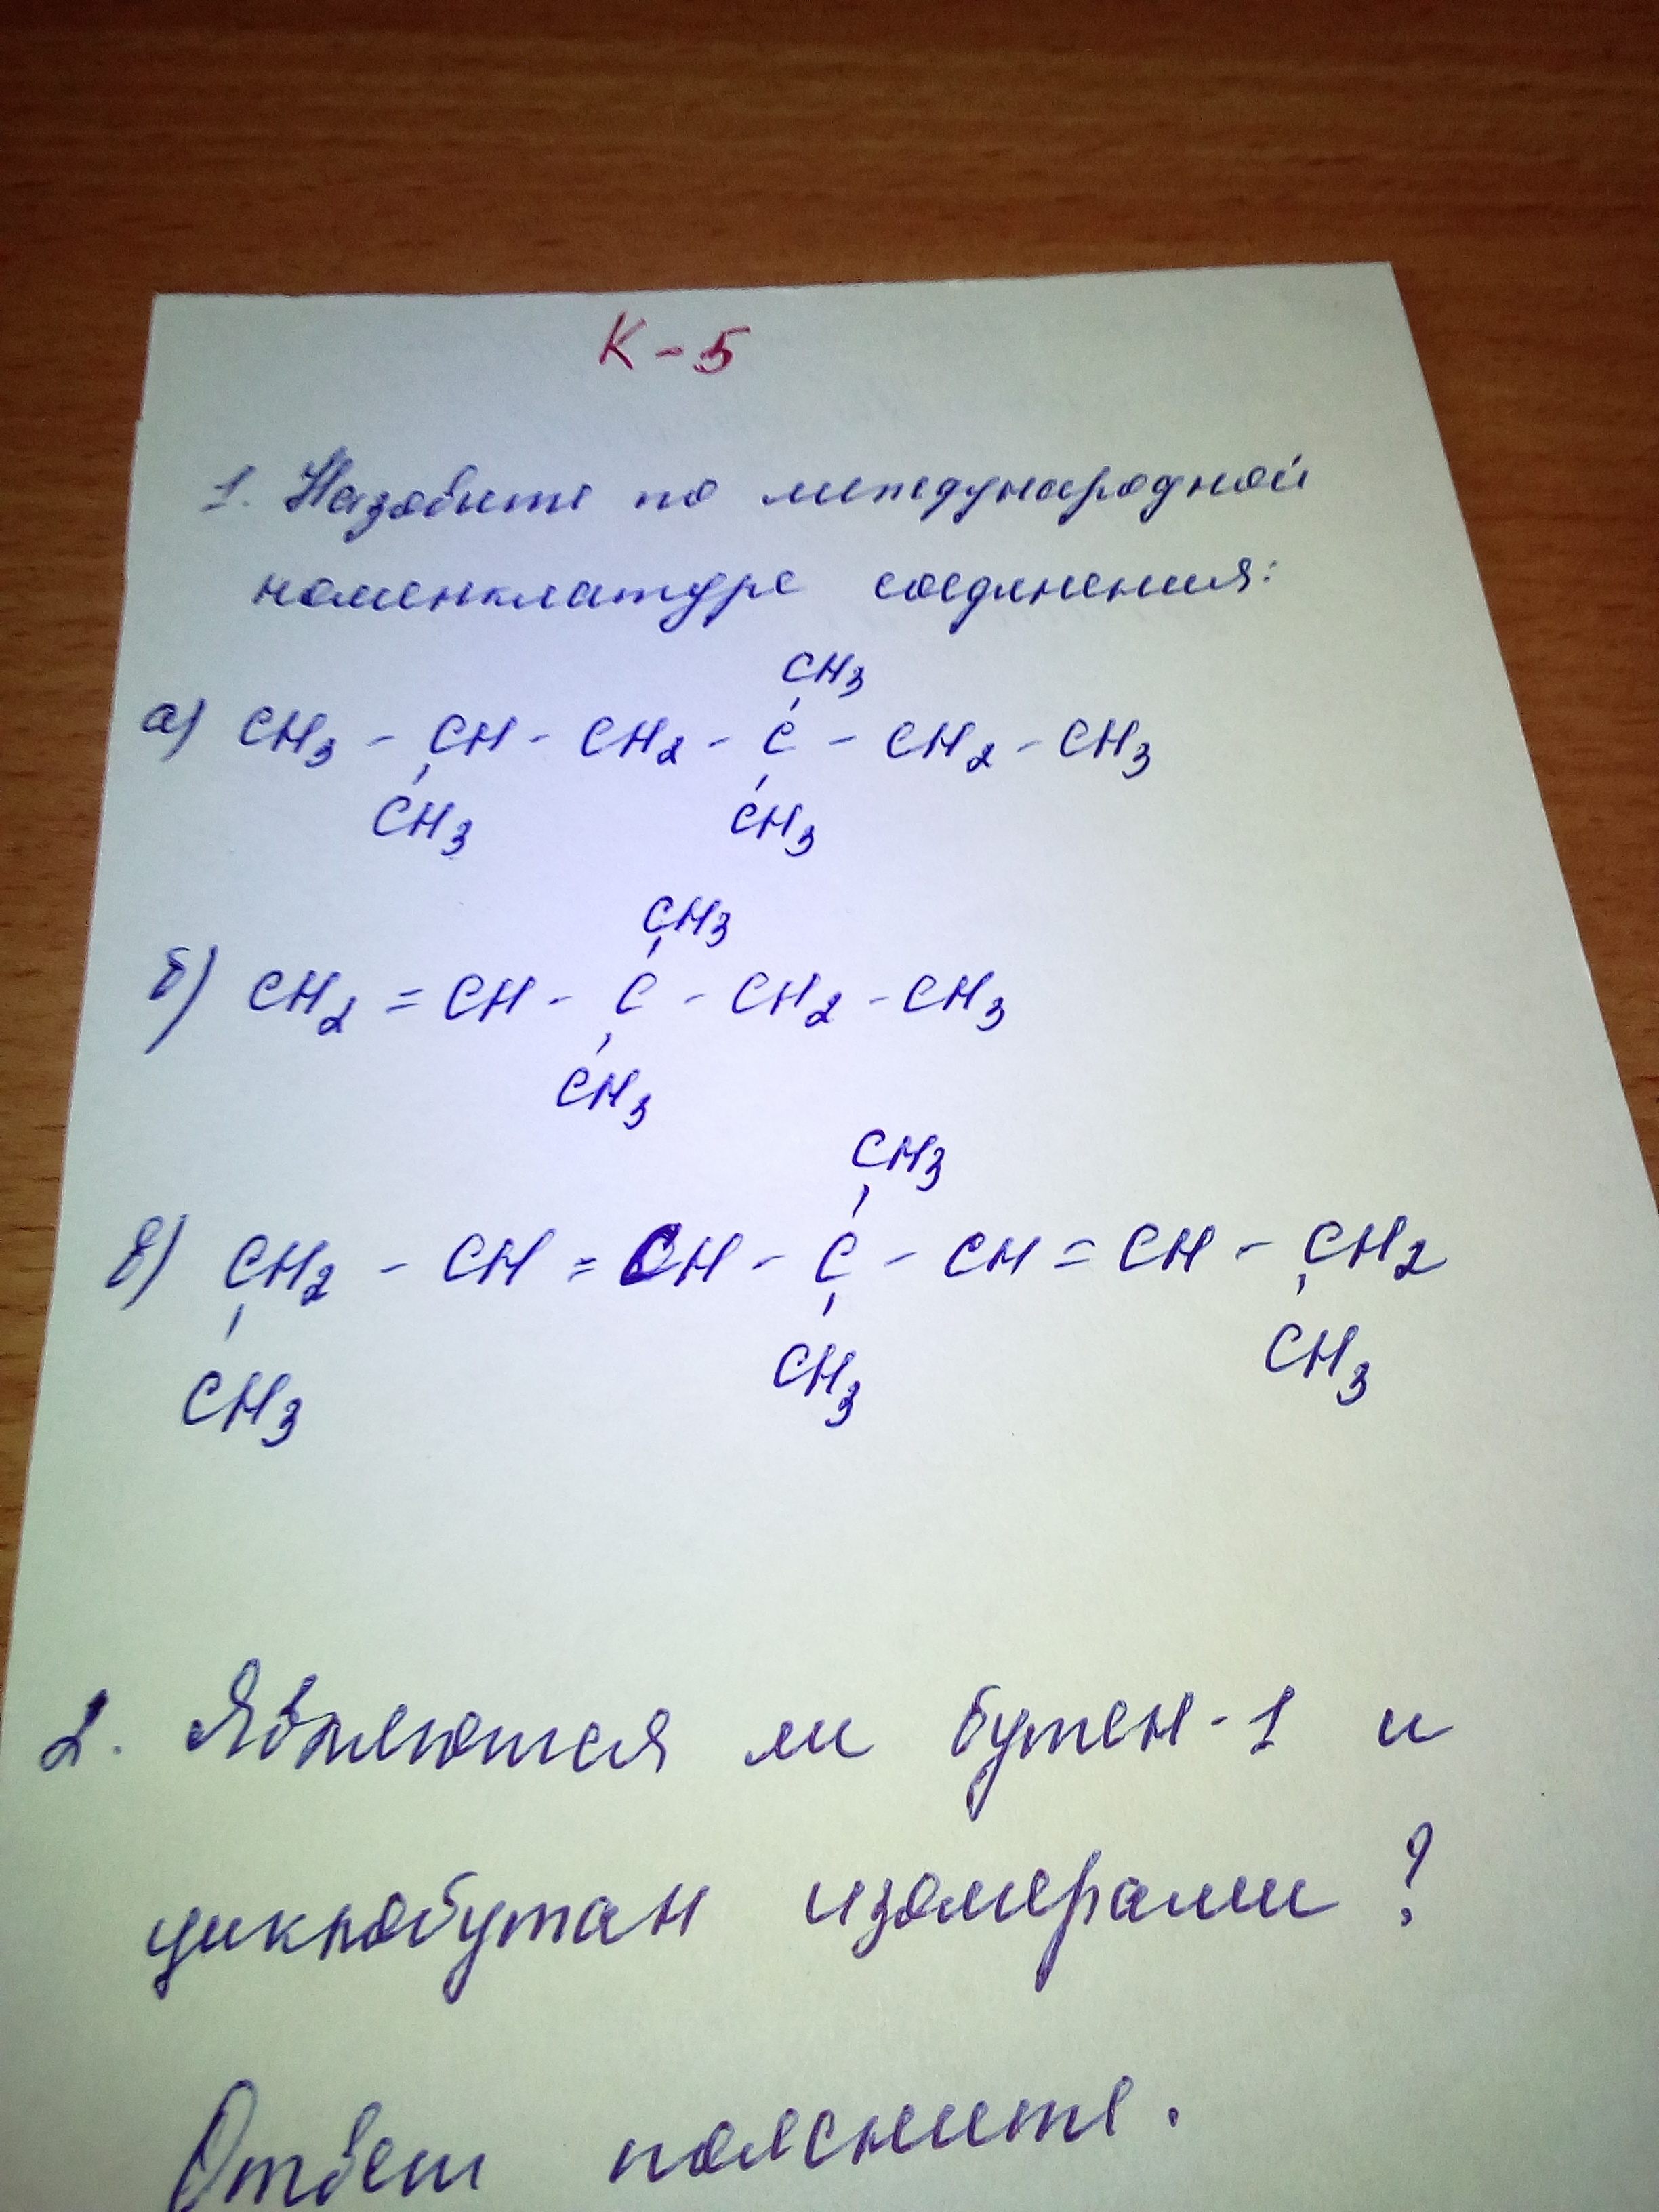 К-5
1. Назовите по международной
номенклатуре соединения:
CH3
а) CH3 - CH - CH2 - C - CH2 - CH3
CH3 CH3
CH3
б) CH2 = CH - C - CH2 - CH3
CH3
CH3
в) CH2 - CH = CH - C - CH = CH - CH2
CH3 CH3 CH3
2. Являются ли бутен-1 и
циклобутан изомерами?
Ответ поясните.